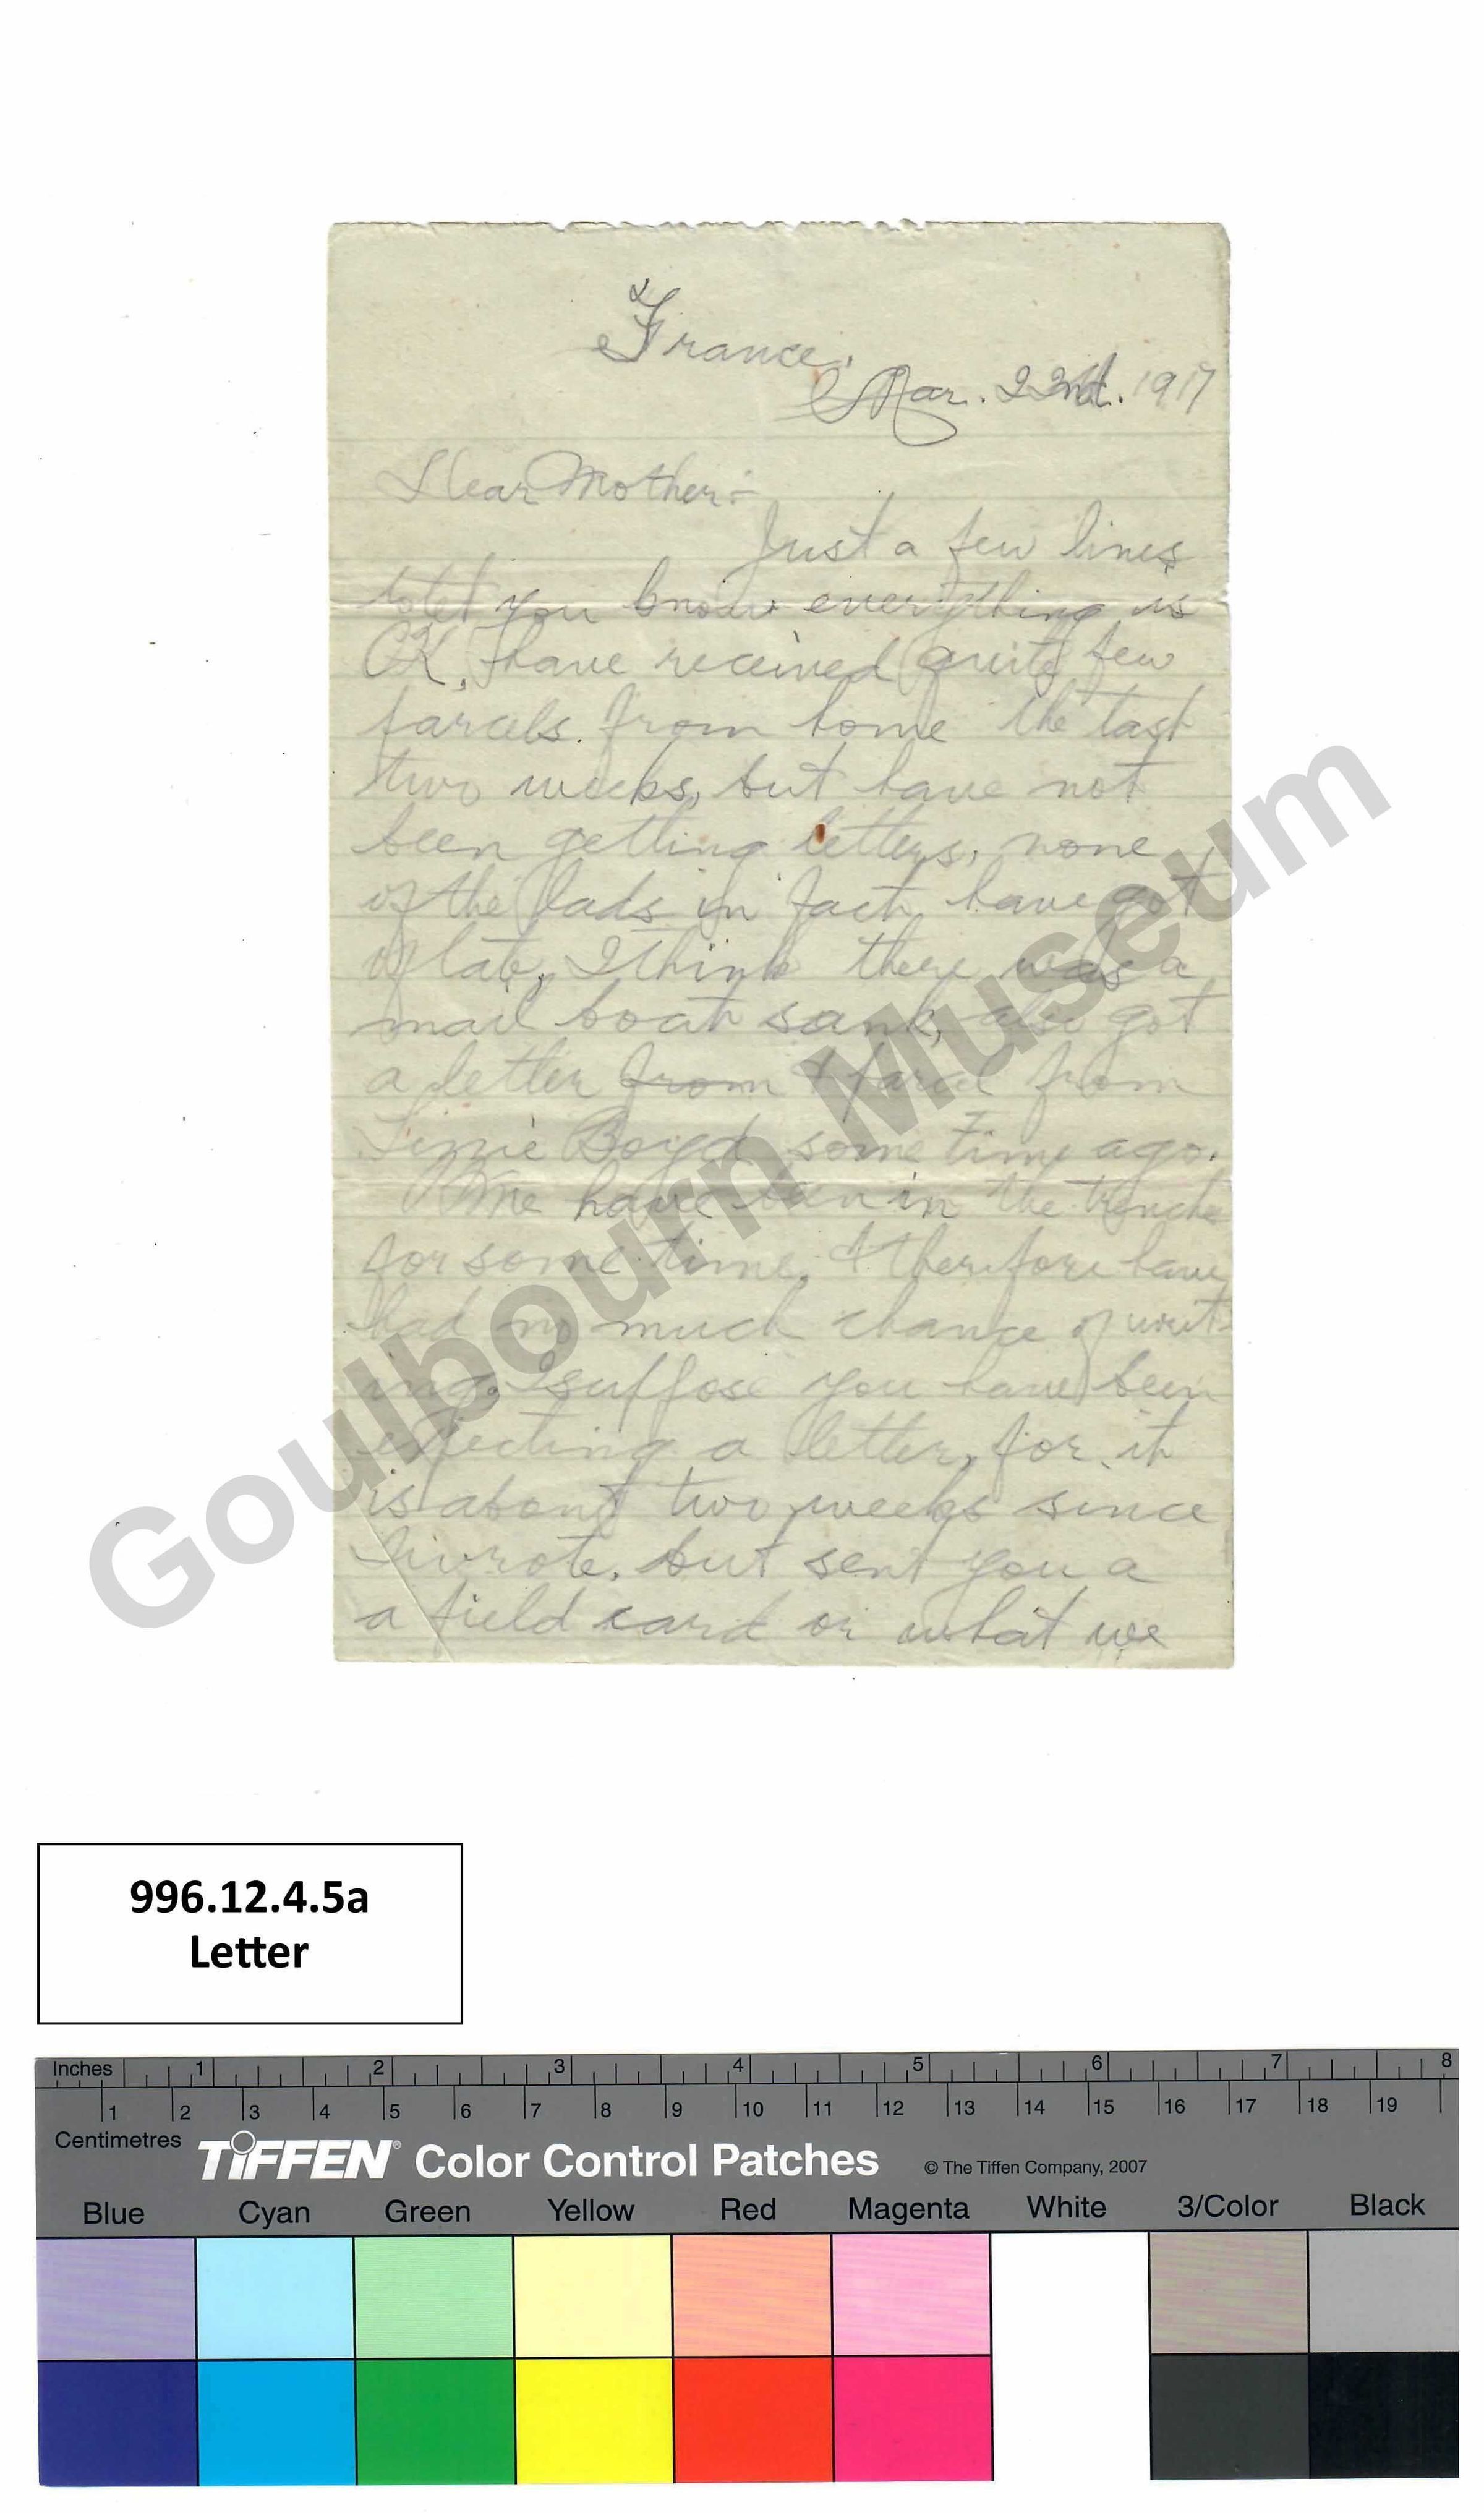 France,
Mar. 22nd. 1917
Dear Mother:-
Just a few lines
to let you know everything is
OK, I have received quite few
parcels. from home the last
two weeks, but have not
been getting letters, none
of the lads in fact, have got
of late, I think there was a
mail boat sank, also got
a letter from & parcel from
Lizzie Boyd some time ago.
We have been in the trenche
for some time, & therefore have
had no much chance of writ-
ing. I suppose you have been
expecting a letter, for it
is about two weeks since
I wrote. but sent you a
a field card or what we
Goulbourn Museum
996.12.4.5a
Letter
Inches 1 2 3 4 5 6 7 8
1 2 3 4 5 6 7 8 9 10 11 12 13 14 15 16 17 18 19
Centimetres
TIFFEN® Color Control Patches © The Tiffen Company, 2007
Blue Cyan Green Yellow Red Magenta White 3/Color Black